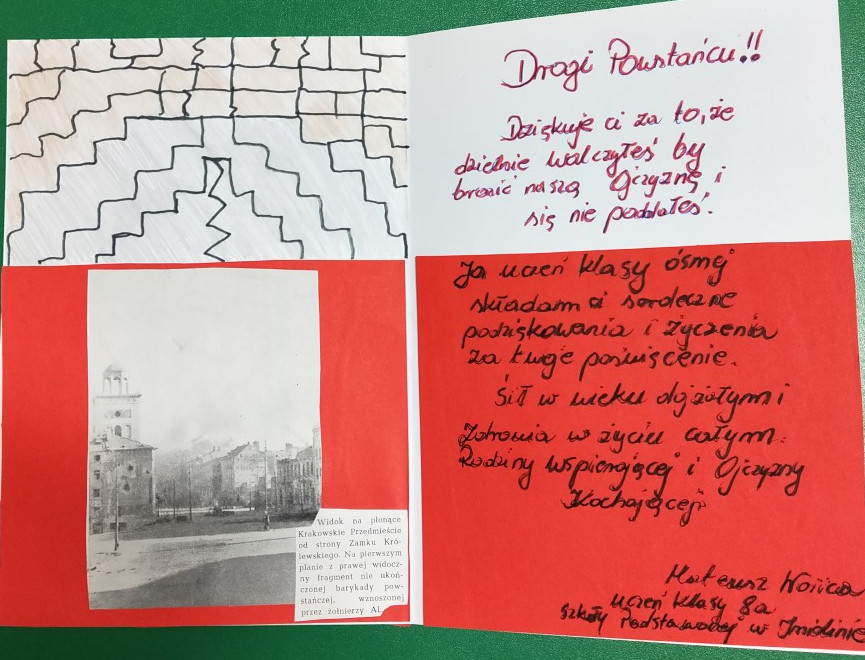 Widok na płonące
Krakowskie Przedmieście
od strony Zamku Kró-
lewskiego. Na pierwszym
planie z prawej widocz-
ny fragment nie ukoń-
czonej barykady pow-
stańczej, wznoszonej
przez żołnierzy AL.
Drogi Powstańcu!!
Dziękuję ci za to, że
dzielnie walczyłeś by
bronić naszą Ojczyznę i
się nie poddałeś.
Ja uczeń klasy ósmej
składam ci serdeczne
podziękowania i życzenia
za twoje poświęcenie.
Sił w wieku dojżołym i
Zdrowia w życiu całym.
Rodziny wspierającej i Ojczyzny
Kochającej
Mateusz
uczeń klasy 8a
Szkoły Podstawowej w Imielinie